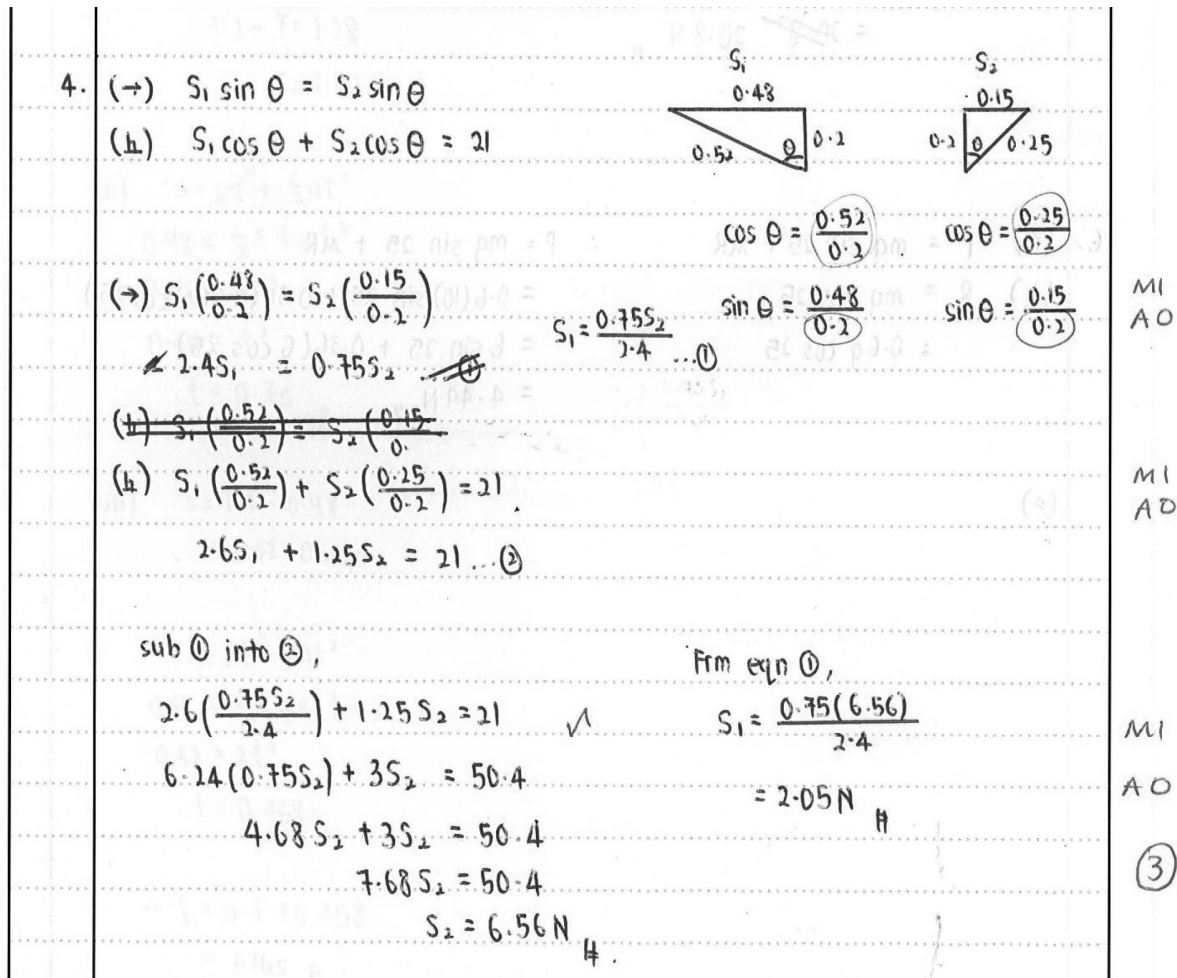 4. (→) S₁ sin θ = S₂ sin θ
(h) S₁ cos θ + S₂ cos θ = 21
S₁
0.48
0.52
θ
0.2
S₂
0.15
0.2
θ
0.25
cos θ = 0.52/0.2
cos θ = 0.25/0.2
(→) S₁(0.48/0.2) = S₂(0.15/0.2)
sin θ = 0.48/0.2
sin θ = 0.15/0.2
M1
A0
2.4S₁ = 0.75S₂ ...①
S₁ = 0.75S₂/2.4 ...①
(h) S₁(0.52/0.2) = S₂(0.15/0.
(h) S₁(0.52/0.2) + S₂(0.25/0.2) = 21
M1
A0
2.6S₁ + 1.25S₂ = 21 ...②
sub ① into ②,
2.6(0.75S₂/2.4) + 1.25S₂ = 21 ✓
M1
6.24(0.75S₂) + 3S₂ = 50.4
4.68S₂ + 3S₂ = 50.4
7.68S₂ = 50.4
S₂ = 6.56N
Frm eqn ①,
S₁ = 0.75(6.56)/2.4
= 2.05N
A0
3